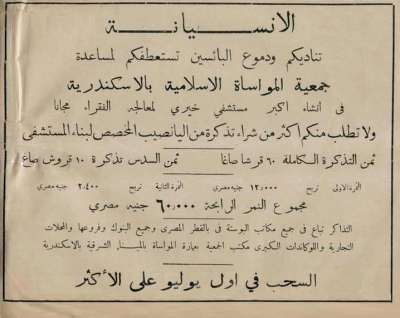 الانسـيـانـة
تناديكم ودموع البائسين تستعطفكم لمساعدة
جمعية المواساة الاسلامية بالاسكندرية
فى انشاء اكبر مستشفى خيرى لمعالجه الفقراء مجانا
ولا تطلب منكم اكثر من شراء تذكرة من اليانصيب المخصص لبناء المستشفى
ثمن التذكرة الكاملة ٦٠ قرشا صاغا ثمن السدس تذكرة ١٠ قروش صاغ
النمرة الاولى تربح ١٢,٠٠٠ جنيه مصرى النمرة الثانية تربح ٢,٤٠٠ جنيه مصرى
مجموع النمر الرابحة ٦٠,٠٠٠ جنيه مصرى
التذاكر تباع فى جميع مكاتب البوستة بالقطر المصرى وجميع البنوك وفروعها والمحلات
التجارية واللوكاندات الكبرى بمكتب الجمعية بعمارة المواساة بالمينا الشرقية بالاسكندرية
السحب في اول يوليو على الأكثر